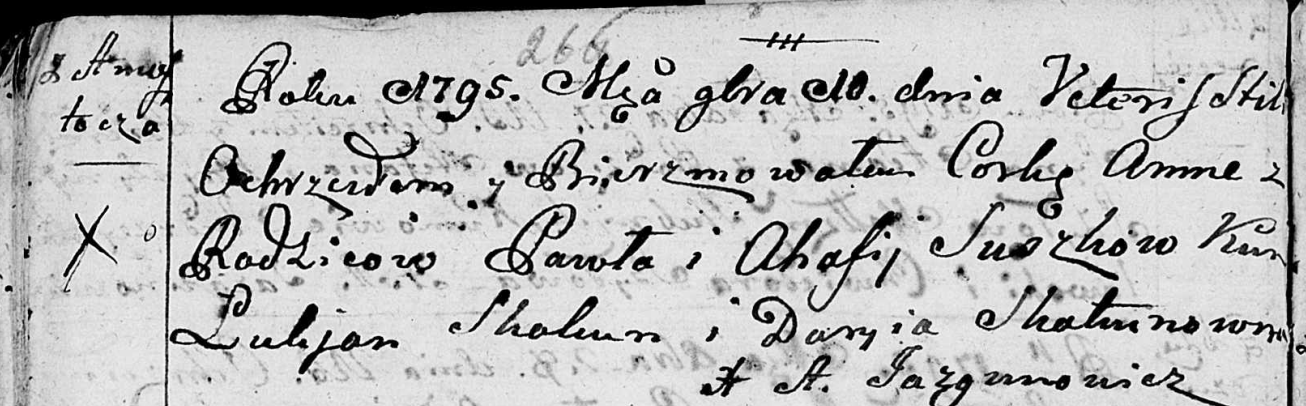 266
z Amoś
tocza
Roku 1795. Mca gbra 10. dnia Veteris Stil
Ochrzciłem y Bierzmowałem Corkę Annę z
X Rodzicow Pawła i Ahafij Suszkow Kum
Lukjan Skakun i Daryia Skakunowna
A. Jazgunowicz